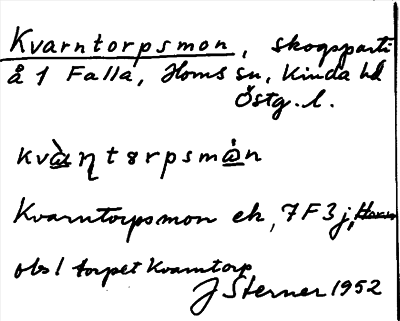 Kvarntorpsmon, skogsparti
å 1 Falla, Horns sn, Kinda hd
Östg. l.
kvàꞃtɤrpsmȧn
Kvarntorpsmon ek, 7F3j,
obs! torpet Kvarntorp
J Sterner 1952